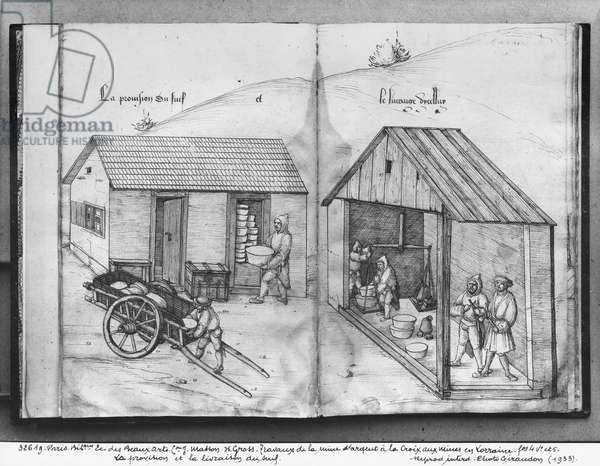 La provision du suif et le livraige d'icelluy
bridgeman
IMAGES
ART CULTURE HISTORY
32619. Paris. Bibque Ec. des Beaux Arts. (on J. Masson. H. Gross. Travaux de la mine d'argent à la Croix aux Mines en Lorraine. fos 4 Vo et 5.
La provision et la livraison du suif. Reprod. interd. Photo Giraudon (1933).